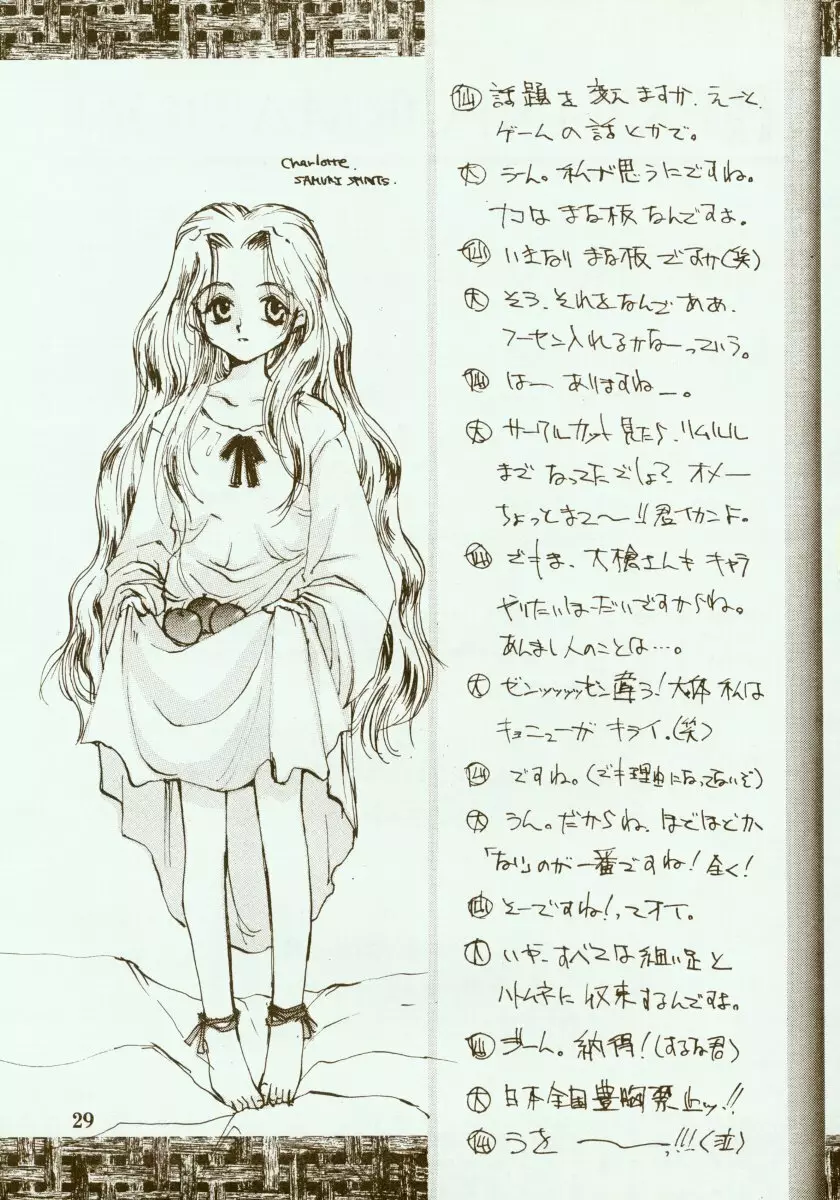 Charlotte.
SAMURI SPIRITS.
仙 話題を変えますか、えーと、
ゲームの話とかで。
大 うーん。私が思うにですね。
ナコはまな板なんですよ。
仙 いきなりまな板ですか(笑)
大 そう、それをなんでああ、
フーセン入れるかなーっていう。
仙 はー ありますねー。
大 サークルカット見たら、リムルル
までなってたでしょ? オメー
ちょっとまて〜!! 君イカンよ。
仙 でもま、大槍さんもキャラ
やりたいほーだいですからね。
あんまし人のことは…。
大 ゼンッッッッゼン違う! 大体私は
キョニューがキライ。(笑)
仙 ですね。(でも理由になってないぞ)
大 うん。だからね、ほどほどか
「ない」のが一番ですね! 全く!
仙 そーですね!ってオイ。
大 いや、すべては細い足と
ハトムネに収束するんですよ。
仙 うーん。納得!(するな君)
大 日本全国豊胸禁止ッ!!
仙 うを———っ!!!(泣)
29